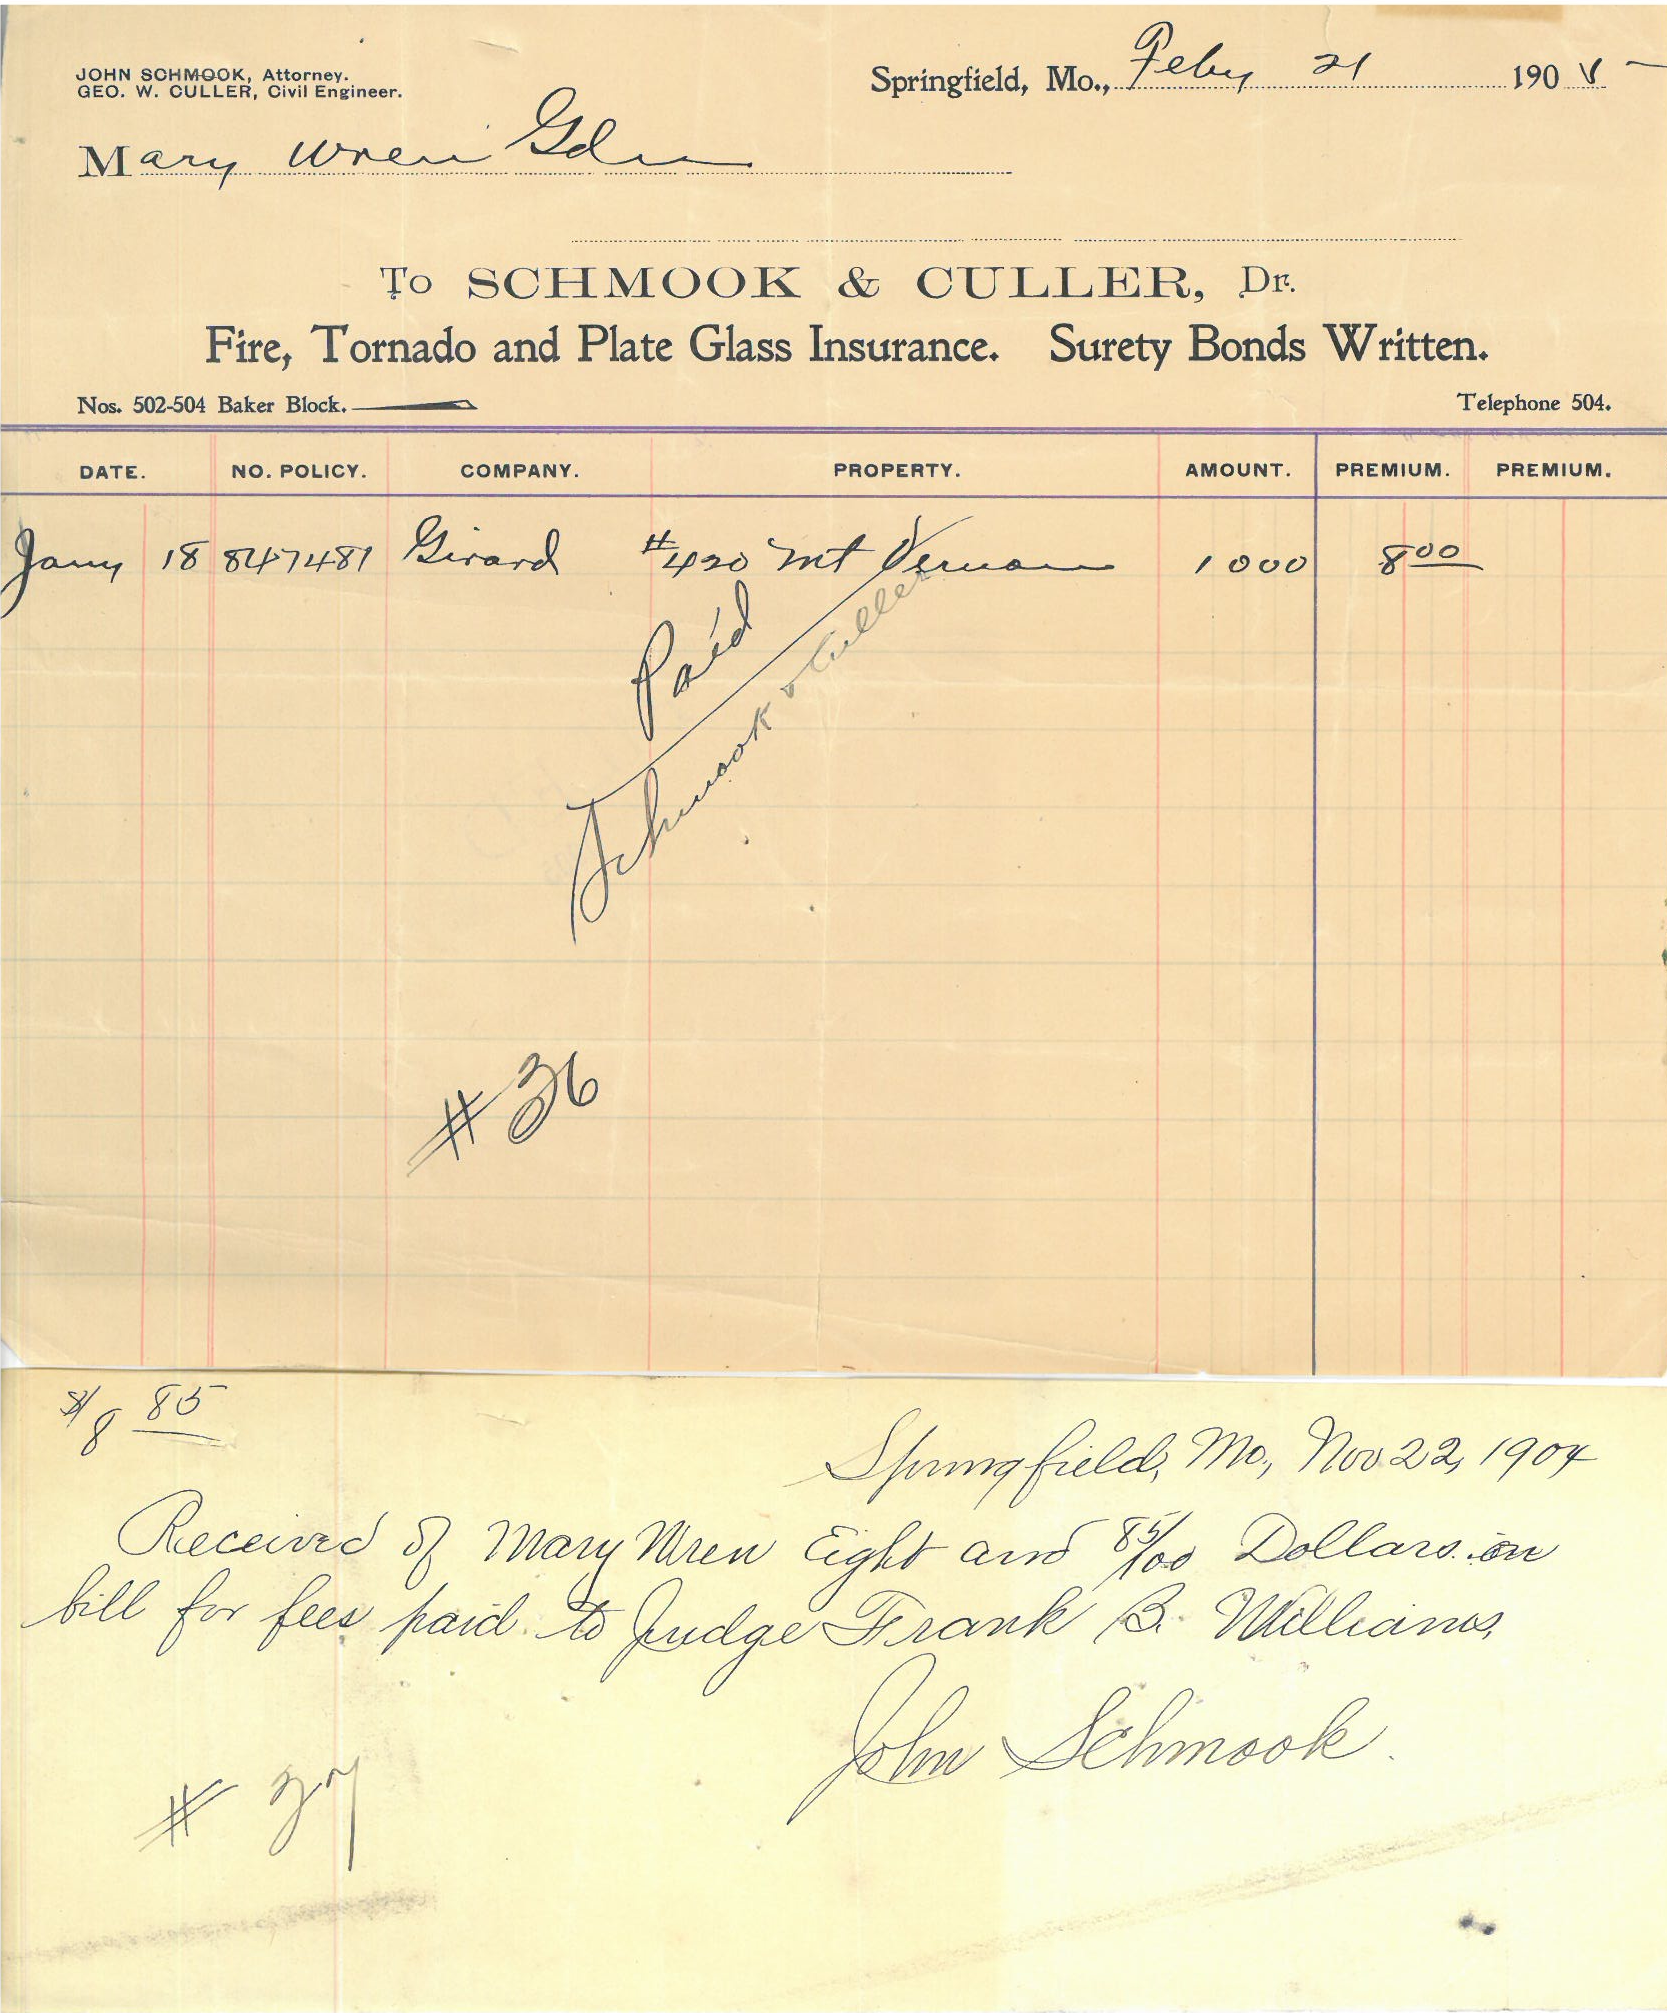 JOHN SCHMOOK, Attorney.
GEO. W. CULLER, Civil Engineer.
Springfield, Mo., Feby 21 190
Mary Wren Gdn
To SCHMOOK & CULLER, Dr.
Fire, Tornado and Plate Glass Insurance. Surety Bonds Written.
Nos. 502-504 Baker Block. Telephone 504.
DATE. NO. POLICY. COMPANY. PROPERTY. AMOUNT. PREMIUM. PREMIUM.
Jany 18 847481 Girard #420 Mt Vernon 1000 8 00
Paid
Schmook & Culler
#36
$8 85
Springfield, Mo., Nov 22, 1904
Received of Mary Wren Eight and 85/100 Dollars on
bill for fees paid to Judge Frank B. Williams,
John Schmook.
# 37